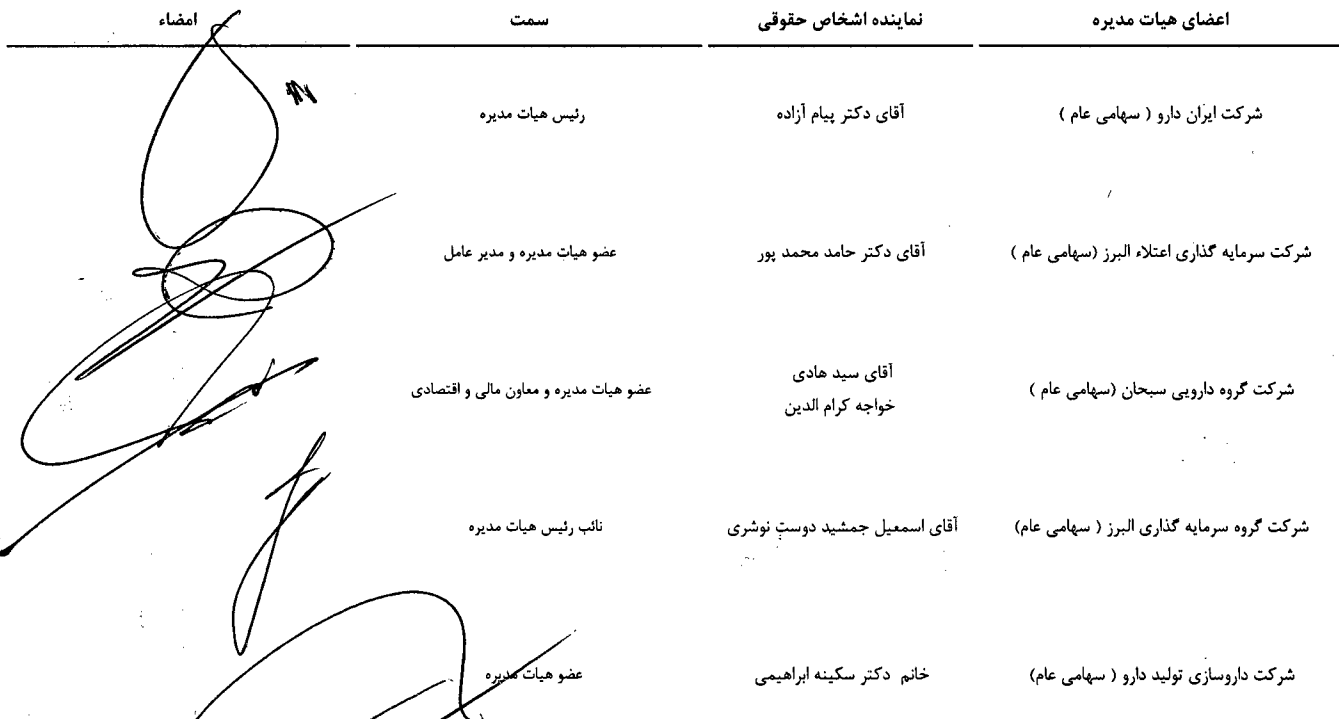 اعضای هیات مدیره نماینده اشخاص حقوقی سمت امضاء
شرکت ایران دارو ( سهامی عام ) آقای دکتر پیام آزاده رئیس هیات مدیره
شرکت سرمایه گذاری اعتلاء البرز (سهامی عام ) آقای دکتر حامد محمد پور عضو هیات مدیره و مدیر عامل
شرکت گروه دارویی سبحان (سهامی عام ) آقای سید هادی عضو هیات مدیره و معاون مالی و اقتصادی
خواجه کرام الدین
شرکت گروه سرمایه گذاری البرز ( سهامی عام) آقای اسمعیل جمشید دوست نوشری نائب رئیس هیات مدیره
شرکت داروسازی تولید دارو ( سهامی عام) خانم دکتر سکینه ابراهیمی عضو هیات مدیره